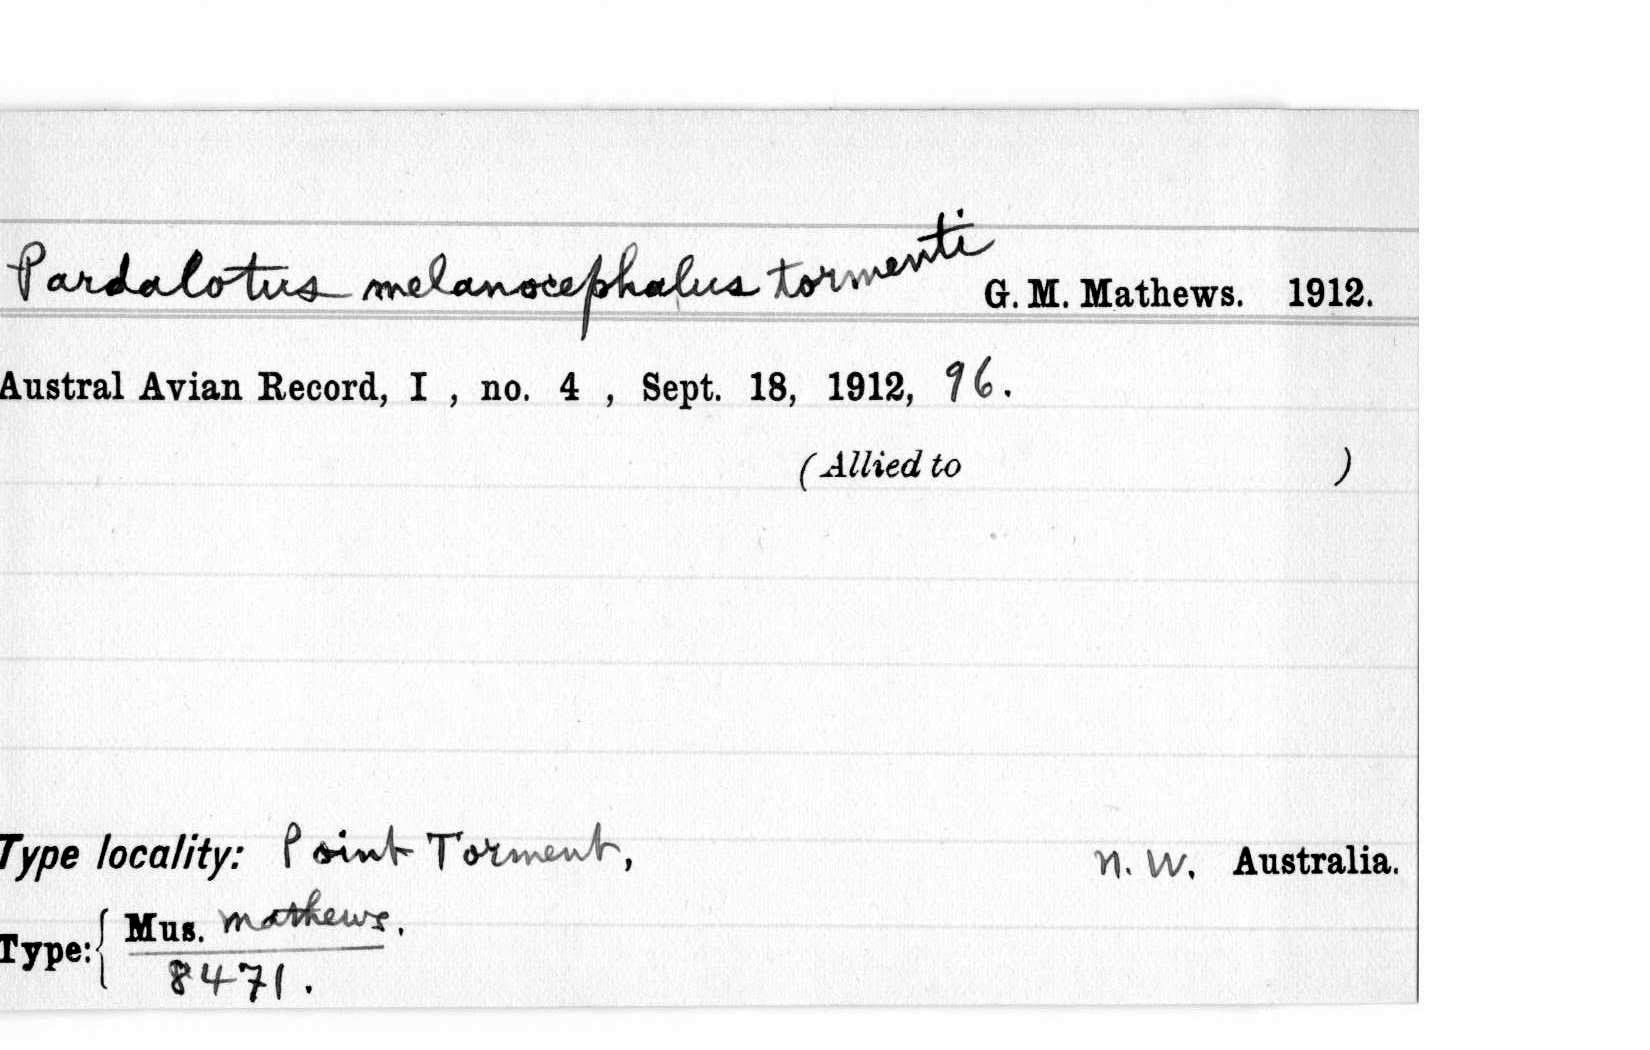 Pardalotus melanocephalus tormenti G. M. Mathews. 1912.
Austral Avian Record, I , no. 4 , Sept. 18, 1912, 96.
(Allied to )
Type locality: Point Torment, N. W. Australia.
Type: { Mus. Mathews.
8471.